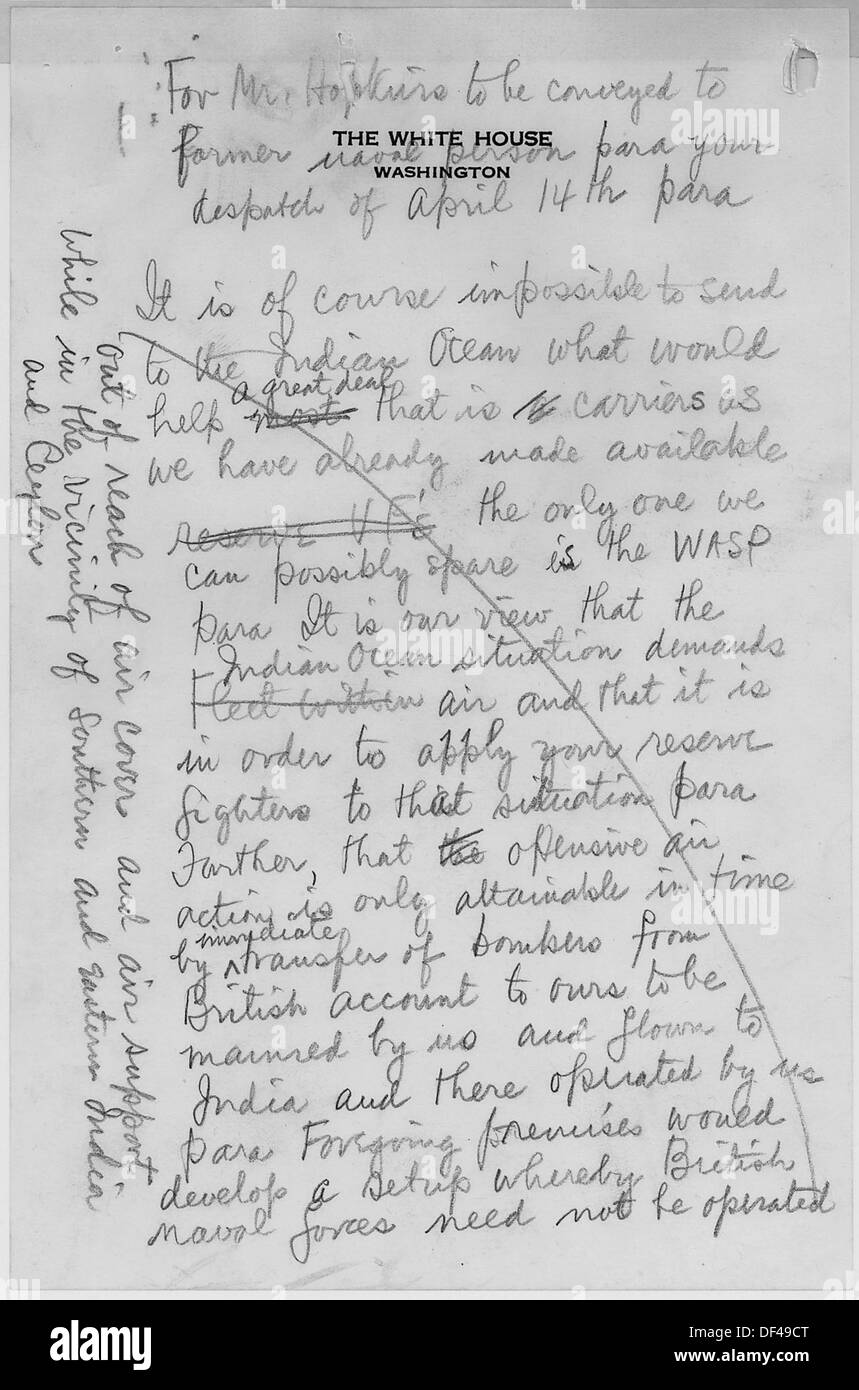 For Mr. Hopkins to be conveyed to
THE WHITE HOUSE
former naval person para your
WASHINGTON
despatch of April 14th para
It is of course impossible to send
to the Indian Ocean what would
a great deal
help most that is carriers as
we have already made available
reserve VF's the only one we
can possibly spare is the WASP
para It is our view that the
Indian Ocean situation demands
Fleet within air and that it is
in order to apply your reserve
fighters to that situation para
Farther, that the offensive air
action is only attainable in time
immediate
by transfer of bombers from
British account to ours to be
mained by us and flown to
India and there operated by us
para Foregoing premises would
develop a setup whereby British
naval forces need not be operated
out of reach of air cover and air support
while in the vicinity of Southern and Eastern India
and Ceylon
alamy
alamy
alamy
alamy
alamy
alamy
a
a
a
a
alamy
Image ID: DF49CT
www.alamy.com